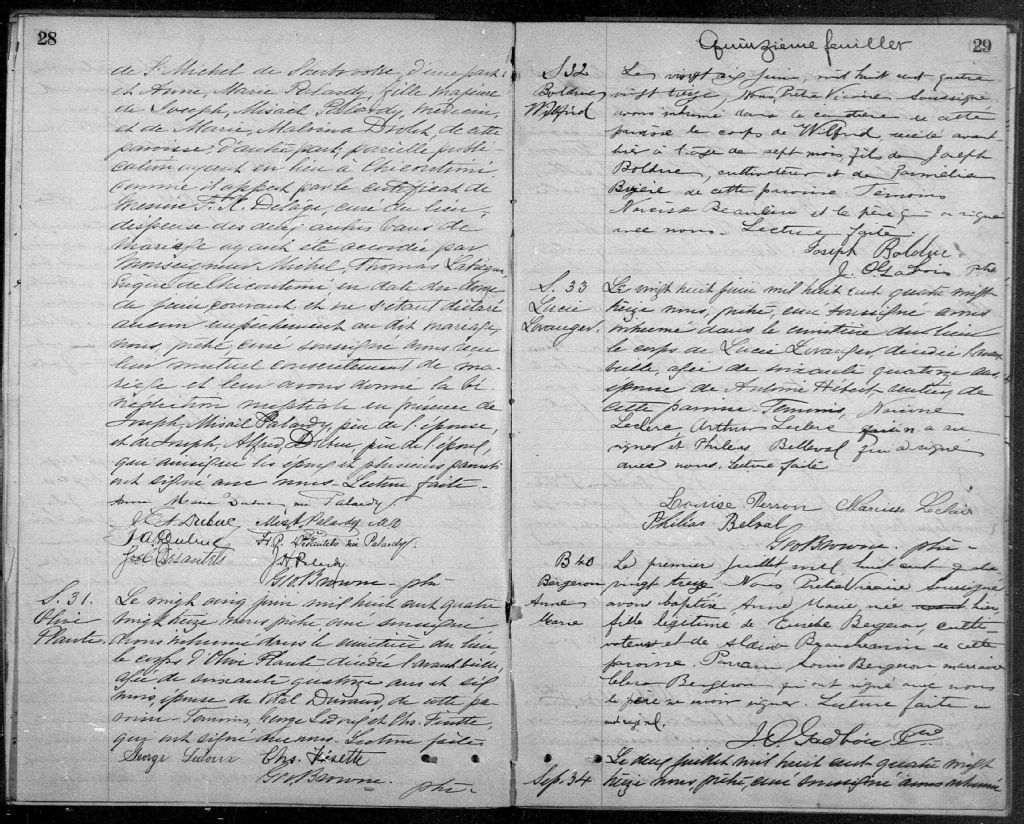 28
de St Michel de Sherbrooke, d'une part;
et Anne, Marie Palardy, fille mineure
de Joseph, Misaël Palardy, médecin,
et de Marie, Malvina Drolet, de cette
paroisse, d'autre part; pareille publi-
cation ayant eu lieu à Chicoutimi,
comme il appert par le certificat de
Messire F. X. Delâge, curé du lieu,
dispense des deux autres bans de
mariage ayant été accordée par
Monseigneur Michel, Thomas Labrecque,
évêque de Chicoutimi en date du onze
de juin courant et ne s'étant déclaré
aucun empêchement au dit mariage,
nous, prêtre, curé soussigné avons reçu
leur mutuel consentement de ma-
riage et leur avons donné la bé-
nédiction nuptiale en présence de
Joseph, Misaël Palardy, père de l'épouse,
et de Joseph, Alfred, Dubuc, père de l'époux,
qui ainsi que les époux et plusieurs parents
ont signé avec nous. Lecture faite -
Anne Marie Dubuc, née Palardy
J. E. A. Dubuc Mis. Palardy M.D
J A Dubuc H. P. Désautels née Palardy.
Jos C Desautels J. H Palardy
Geo Browne - ptre -
S. 31.
Olive
Plante.
Le vingt cinq juin mil huit cent quatre
vingt treize nous prêtre curé soussigné
avons inhumé dans le cimetière du lieu,
le corps d'Olive Plante décédée l'avant veille,
agée de soixante quatorze ans et six
mois, épouse de Vital Dumond, de cette pa-
roisse - Témoins, George Ledoux et Chs. Fisette,
qui ont signé avec nous. Lecture faite
George Ledoux Chs. Fisette
Geo Browne. ptre -
Quinzième feuillet 29
S 32
Bolduc
Wilfrid
Le vingt six juin, mil huit cent quatre
vingt treize, Nous, Prêtre Vicaire soussigné
avons inhumé dans le cimetière de cette
paroisse le corps de Wilfrid, décédé avant
hier à l'âge de sept mois, fils de Joseph
Bolduc, cultivateur et de
de cette paroisse. Témoins
Narcisse Beaulieu et le père qui a signé
avec nous. Lecture faite.
Joseph Bolduc
J. O Gadbois ptre
S. 33
Lucie
Levanger.
Le vingt huit juin mil huit cent quatre vingt
treize nous, prêtre, curé soussigné avons
inhumé dans le cimetière du lieu
le corps de Lucie Levanger, décédée l'avant
veille, agée de soixante quatorze ans
épouse de Antoine Hébert, de
cette paroisse - Témoins, Narcisse
Leclerc, Arthur Leclerc qui n'a su
signer et Philias Belleval qui a signé
avec nous. Lecture faite
Louise Perron Narcisse Leclair
Philias Belval
Geo Browne. ptre -
B 40
Bergeron
Anne
Marie
Le premier juillet mil huit cent quatre
vingt treize Nous Prêtre Vicaire Soussigné
avons baptisé Anne Marie, née hier,
fille légitime de Eusèbe Bergeron, culti-
vateur et de de cette
paroisse. Parrain Louis Bergeron marraine
Clara Bergeron qui ont signé avec nous
le père ne savoir signer. Lecture faite
J. O. Gadbois Ptre
Sep. 34
Le deux juillet mil huit cent quatre vingt
treize nous, prêtre, curé soussigné avons inhumé